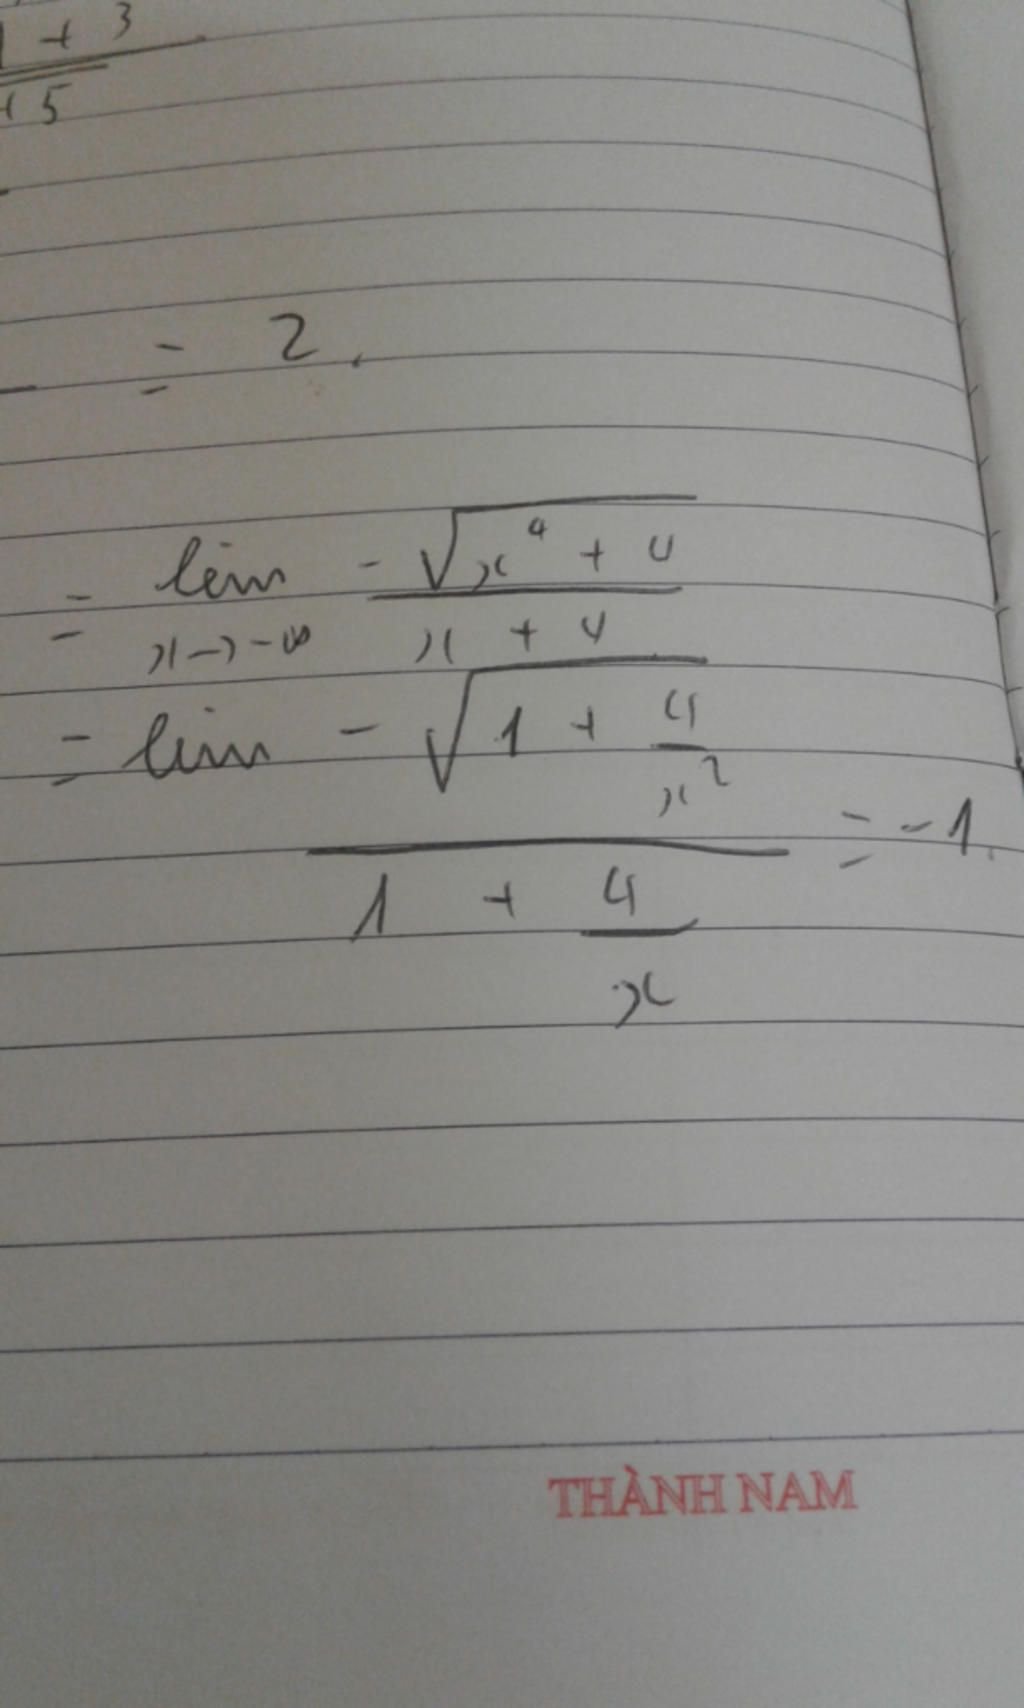 1 + 3
+ 5
= 2.
= lim - √x⁴ + 4
x → -∞ x + 4
= lim - √1 + 4
x²
= -1.
1 + 4
x
THÀNH NAM